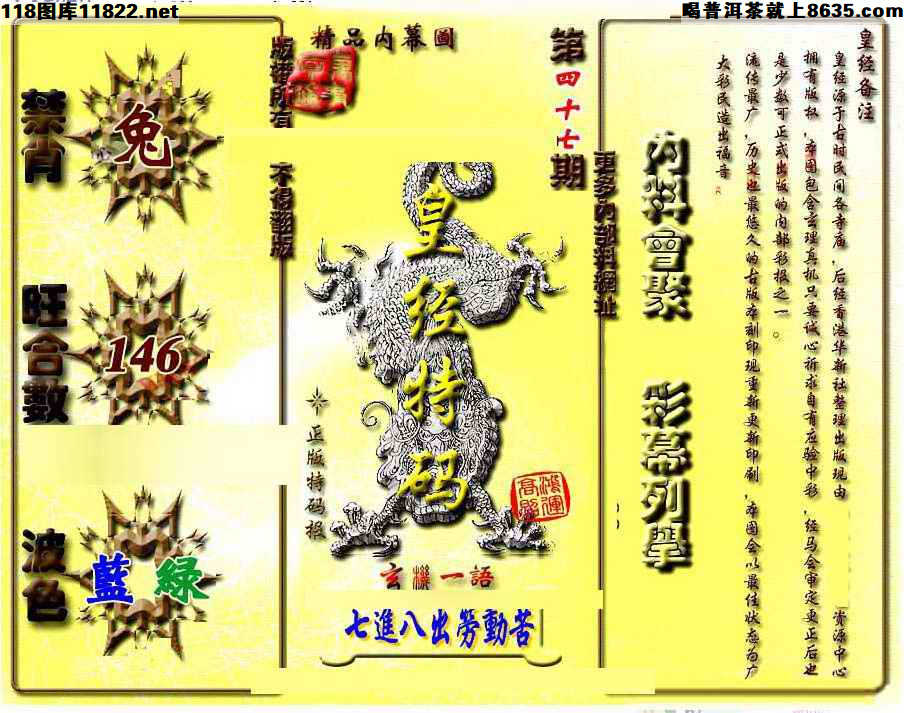 118图库11822.net
喝普洱茶就上8635.com
精品内幕圖
第四十七期
版權所有
不得翻版
更多內部料網址
禁肖
兔
旺合數
146
波色
藍 綠
皇经特码
正版特码报
鴻運高照
玄機一語
七進八出勞動苦
內料會聚
彩幕列舉
皇经备注
皇经源于古时民间各寺庙，后经香港华新社整理出版现由
资源中心
拥有版权，本图包含玄理真机只要诚心祈求自有应验中彩，经马会审定更正后也
是少数可正式出版的内部彩报之一。
流传最广，历史也最悠久的古版本刻印现重新更新印刷，本图会以最佳状态为广
大彩民造出福音。